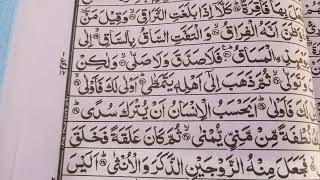 بِهَا فَاقِرَةٌ ۞ كَلَّاۤ اِذَا بَلَغَتِ التَّرَاقِیَ ۞ وَقِیْلَ مَنْ
وَّظَنَّ اَنَّهُ الْفِرَاقُ ۞ وَالْتَفَّتِ السَّاقُ بِالسَّاقِ ۞ اِلٰی
یَوْمَئِذِ ِۣالْمَسَاقُ ۞ فَلَا صَدَّقَ وَلَا صَلّٰی ۞ وَلٰکِنْ
وَتَوَلّٰی ۞ ثُمَّ ذَهَبَ اِلٰۤی اَهْلِهٖ یَتَمَطّٰی ۞ اَوْلٰی لَكَ فَاَوْلٰی
لَكَ فَاَوْلٰی ۞ اَیَحْسَبُ الْاِنْسَانُ اَنْ یُّتْرَكَ سُدًی
نُطْفَةً مِّنْ مَّنِیٍّ یُّمْنٰی ۞ ثُمَّ كَانَ عَلَقَةً فَخَلَقَ
فَجَعَلَ مِنْهُ الزَّوْجَیْنِ الذَّكَرَ وَالْاُنْثٰی ۞ اَلَیْسَ